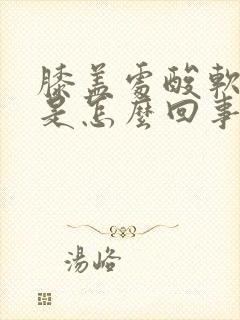 膝盖處酸軟
是怎麼回事
湯峪